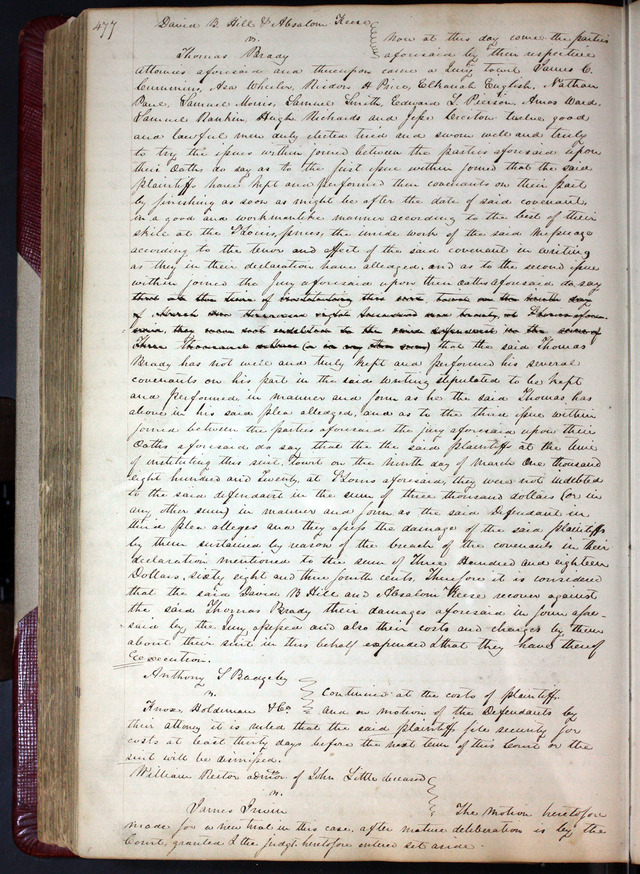 477
David B. Hill & Absalom Keese
vs.
Thomas Brady
Now at this day come the parties
aforesaid by their respective
attornies aforesaid and thereupon came a Jury towit James C.
Cummins, Asa Wheeler, Risdon H Price, Elkanah English, Nathan
Pane, Samuel Morris, Samuel Smith, Edward L. Pierson, Amos Ward,
Samuel Rankin, Hugh Richards and Jesse twelve good
and lawful men duly elected tried and sworn well and truly
to try the issues within joined between the parties aforesaid upon
their Oaths do say as to the first issue within joined that the said
plaintiffs have kept and performed their covenants on their part
by finishing as soon as might be after the date of said covenant
in a good and workmanlike manner according to the best of their
skill at the St Louis prices, the inside work of the said Messuage
according to the tenor and effect of the said covenant in writing
as they in their declaration have alledged, and as to the second issue
within joined the jury aforesaid upon their oaths aforesaid do say
that at the time of instituting this suit, towit on the ninth day
of March one thousand eight hundred and twenty, at St Louis afore-
said, they were not indebted to the said defendant in the sum of
three thousand dollars (or in any other sum) that the said Thomas
Brady has not well and truly kept and performed his several
covenants on his part in the said writing stipulated to be kept
and performed in manner and form as he the said Thomas has
above in his said plea alledged, and as to the third issue within
joined between the parties aforesaid the jury aforesaid upon their
Oaths aforesaid do say that the the said plaintiffs at the time
of instituting this suit, Towit on the Ninth day of March One thousand
eight hundred and Twenty at St Louis aforesaid, they were not indebted
to the said defendant in the sum of three thousand dollars (or in
any other sum) in manner and form as the said Defendant in
third plea alleges and they assess the damage of the said plaintiffs
by them sustained by reason of the breach of the covenants in their
declaration mentioned to the sum of Three Hundred and eighteen
Dollars, sixty eight and three fourth cents. Therefore it is considered
that the said David B Hill and Absalom Keese recover against
the said Thomas Brady their damages aforesaid in form afore-
said by the Jury assessed and also their costs and charges by them
about their suit in this behalf expended & that they have thereof
Execution.
Anthony S Badgeley
vs.
Knox, Holdiman & Co
Continued at the costs of plaintiff.
and on motion of the Defendants by
their attorney it is ruled that the said plaintiff file security for
costs at least thirty days before the next term of this Court or the
suit will be dismissed.
William Rector admor. of John Little deceased
vs.
James Irwin
The Motion heretofore
made for a new trial in this case, after mature deliberation is by the
Court, granted & the Judgt. heretofore entered set aside.